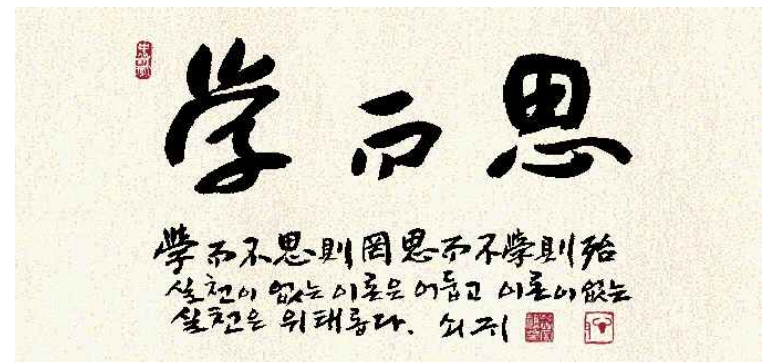 学而思
學而不思則罔思而不學則殆
실천이 없는 이론은 어둡고 이론이 없는
실천은 위태롭다. 쇠귀